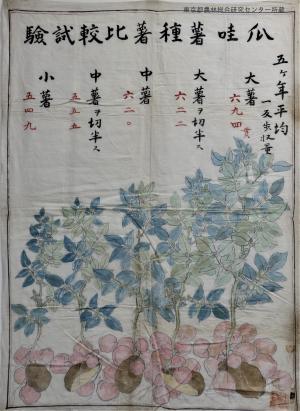 東京都農林総合研究センター所蔵
瓜哇薯種薯比較試験
五ヶ年平均
一反歩収量
大薯
六九四貫
大薯ヲ切半ス
六二二
中薯
六二〇
中薯ヲ切半ス
五五五
小薯
五四九